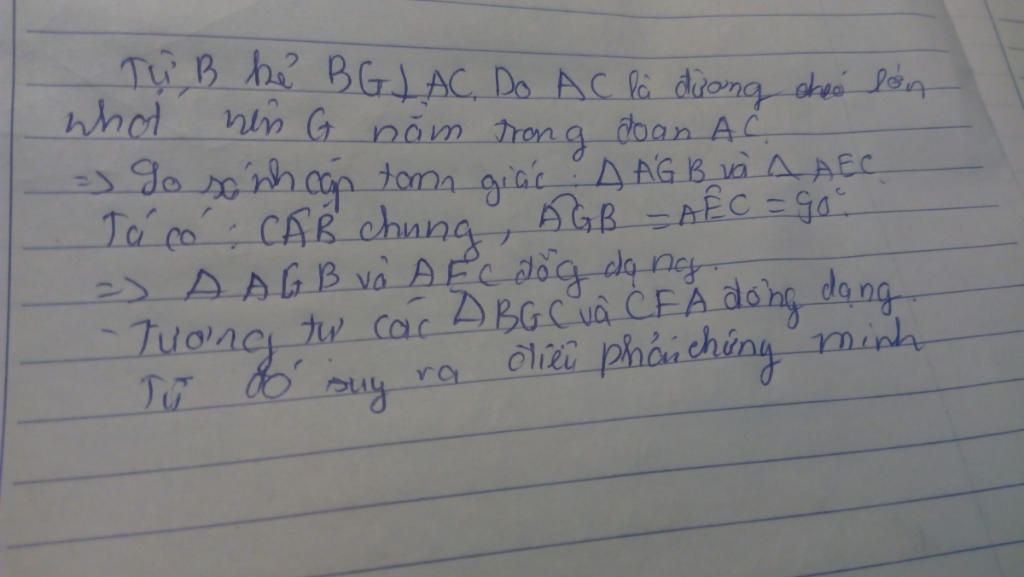 Từ B kẻ BG⊥AC. Do AC là đường chéo lớn
nhất nên G nằm trong đoạn AC.
=> so sánh cặp tam giác: Δ AGB và Δ AEC
Ta có: CÂB chung, AGB = AÊC = 90°.
=> Δ AGB và AEC đồg dạng.
- Tương tự các ΔBGC và CFA đồng dạng.
Từ đó suy ra điều phải chứng minh